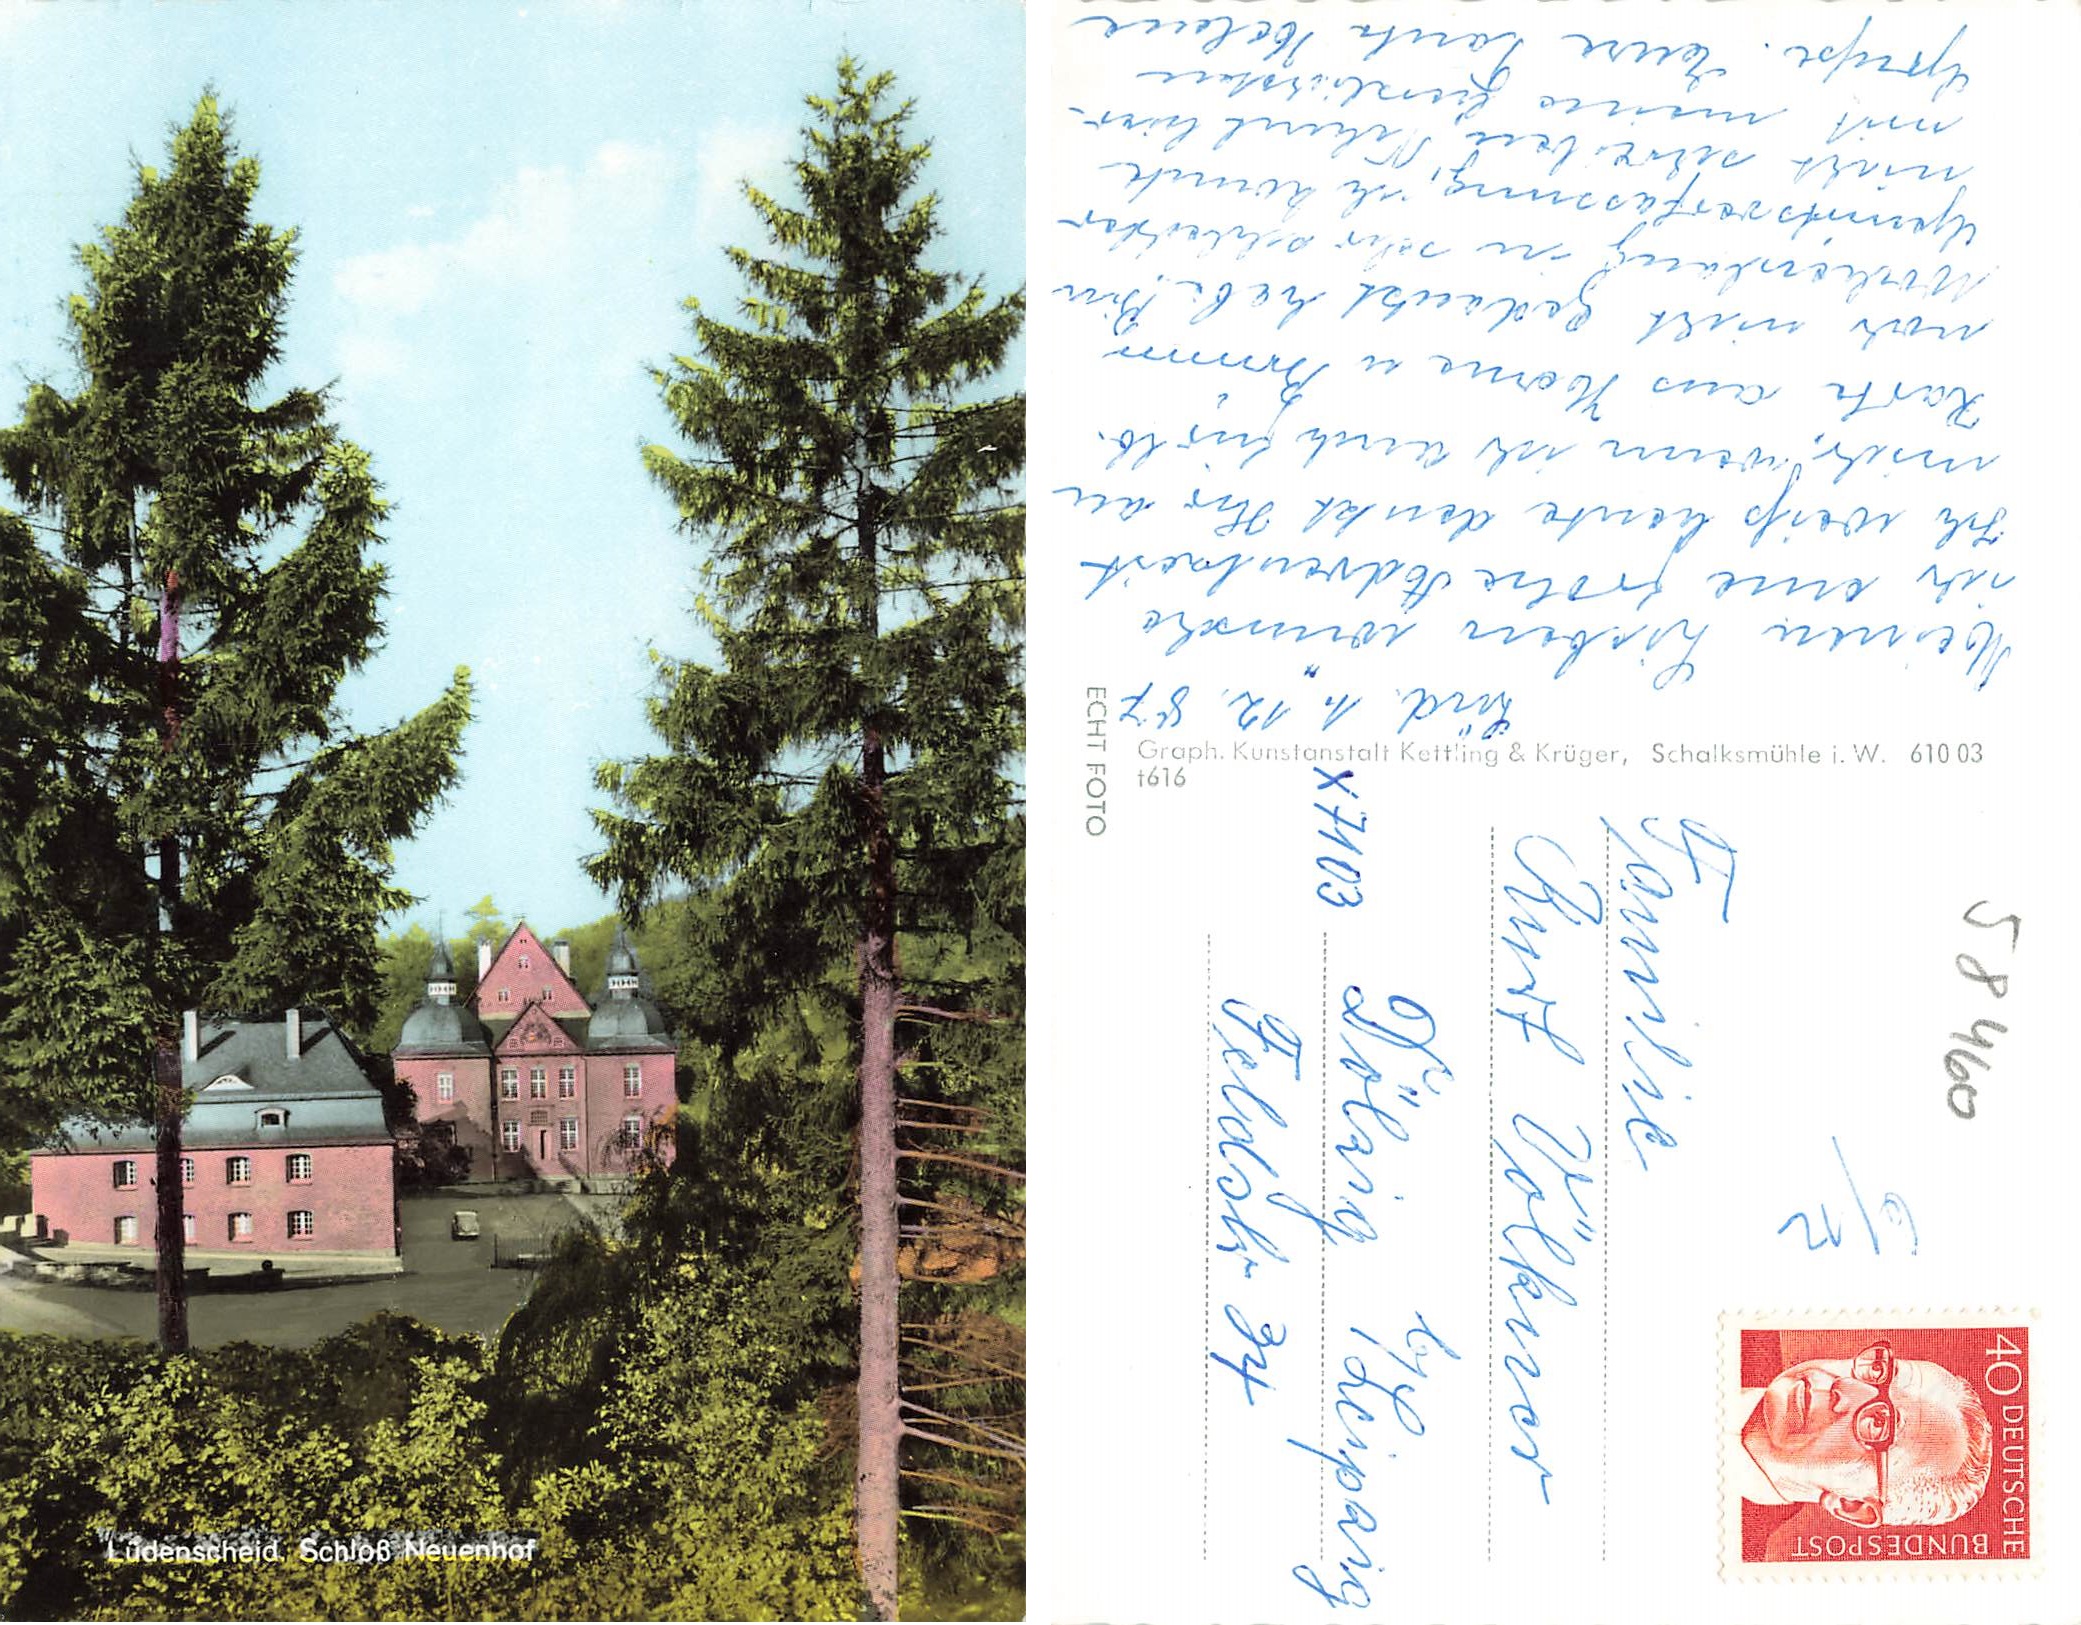 Lüdenscheid, Schloß Neuenhof
Lüd. 1. 12. 87
Meinen Lieben wünsche
ich eine frohe Adventszeit
Ich weiß heute denkt Ihr an
mich, wenn ich auch für lb.
Karte aus Herne u
noch nicht gedankt habe. Bin
in sehr schlechter
Gemütsverfassung, ich konnte
nicht schreiben
mit meine herzlichsten
Grüße. Eure Tante Helene
ECHT FOTO
Graph. Kunstanstalt Kettling & Krüger, Schalksmühle i. W. 610 03
t616
Familie
Kurt Völkner
X7103 Dölzig b/ Leipzig
Feldstr 34
58460
6/12
40 DEUTSCHE
BUNDESPOST